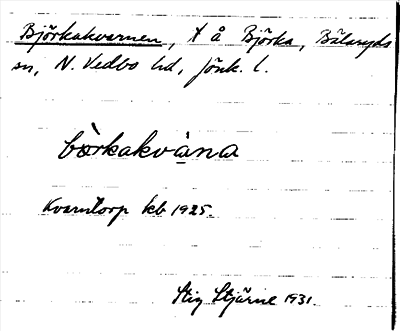 Björkakvarnen, t å Björka, Bälaryds
sn, N. Vedbo hd, Jönk. l.
börkakvàna
Kvarntorp kb 1925.
Stig Stjärne 1931.